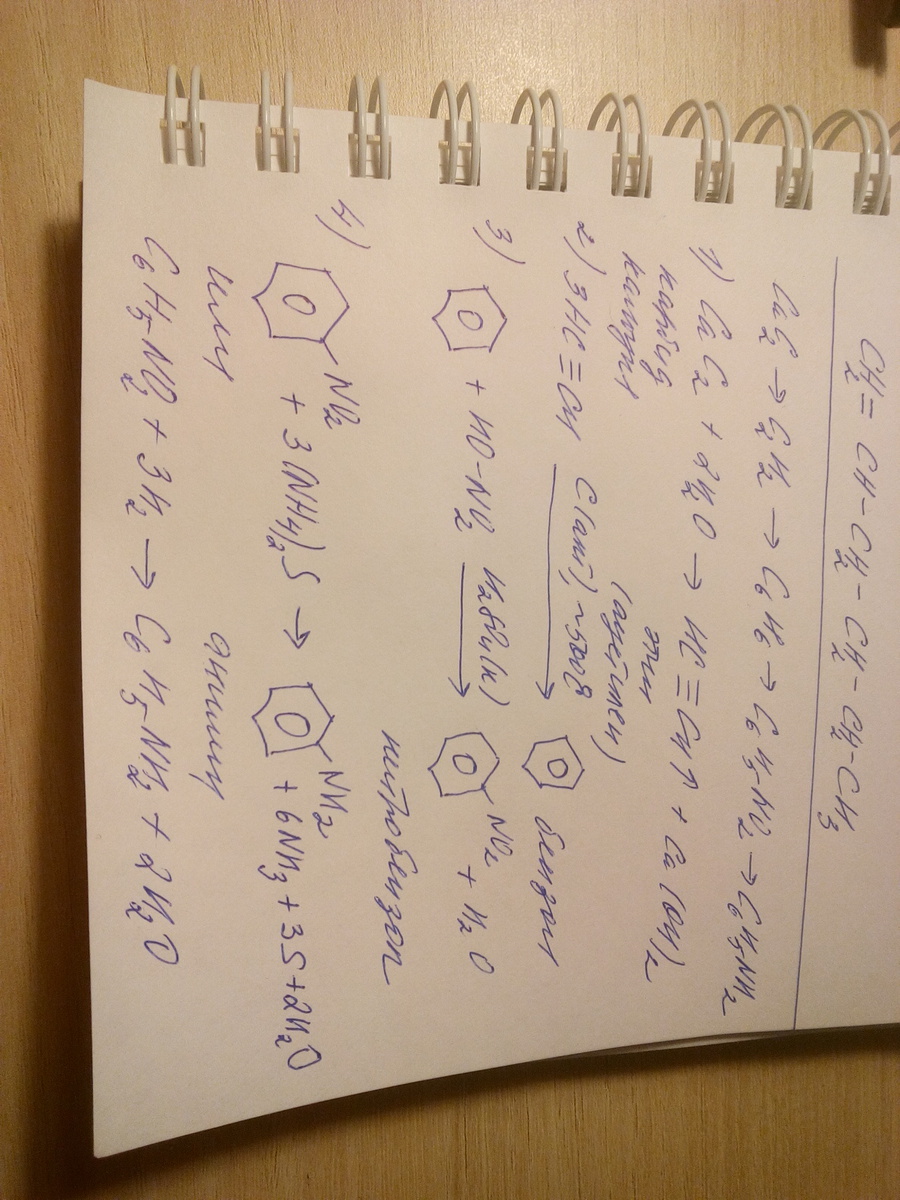 CH₂ = CH - CH₂ - CH₂ - CH₂ - CH₃
CaC₂ → C₂H₂ → C₆H₆ → C₆H₅NO₂ → C₆H₅NH₂
1) CaC₂ + 2H₂O → HC ≡ CH↑ + Ca(OH)₂
карбид этин
кальция (ацетилен)
2) 3HC ≡ CH C(акт), ~500° → бензол
3) + HO-NO₂ H₂SO₄(к) → NO₂ + H₂O
нитробензол
4) NO₂ + 3(NH₄)₂S → NH₂ + 6NH₃ + 3S + 2H₂O
или анилин
C₆H₅-NO₂ + 3H₂ → C₆H₅-NH₂ + 2H₂O